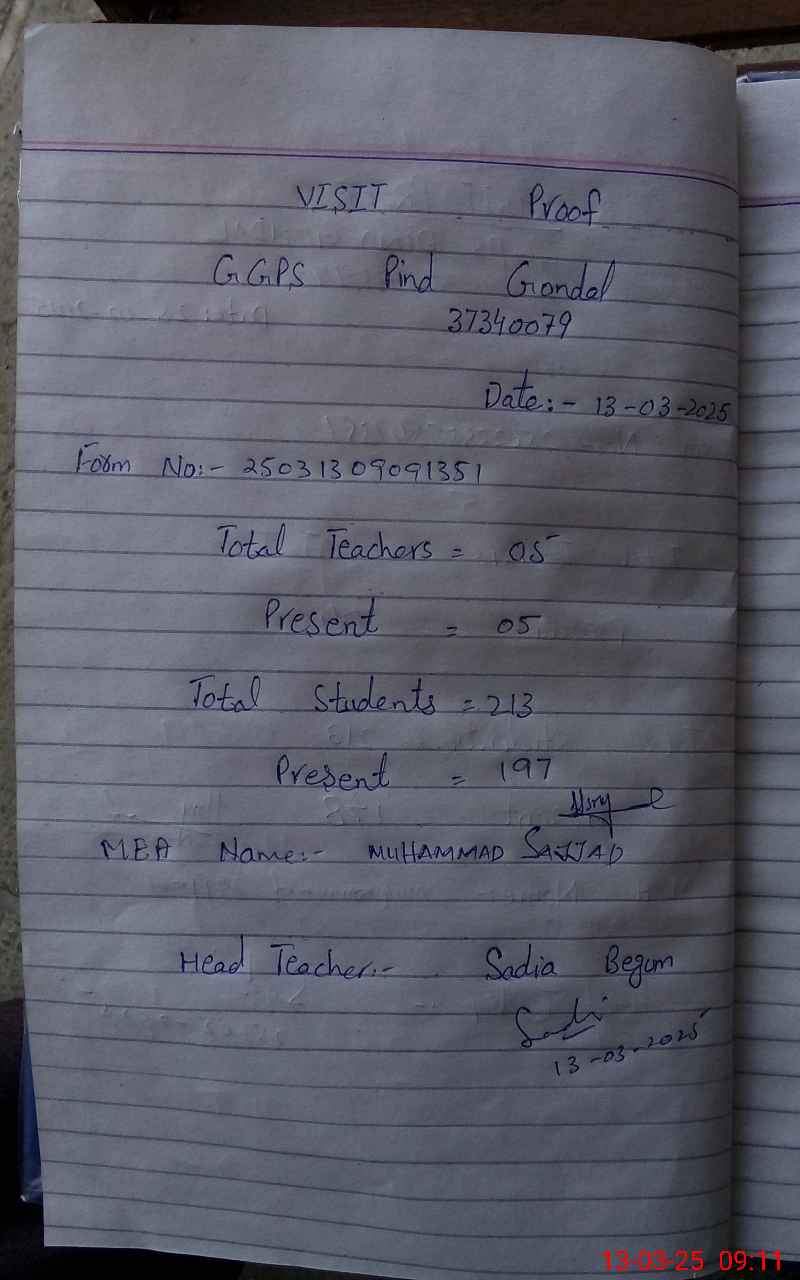 VISIT Proof
GGPS Pind Gondal
37340079
Date:- 13-03-2025
Form No:- 25031309091351
Total Teachers = 05
Present = 05
Total Students = 213
Present = 197
MEA Name:- MUHAMMAD SAJJAD
Head Teacher:- Sadia Begum
Sadi
13-03-2025
13-03-25 09:11